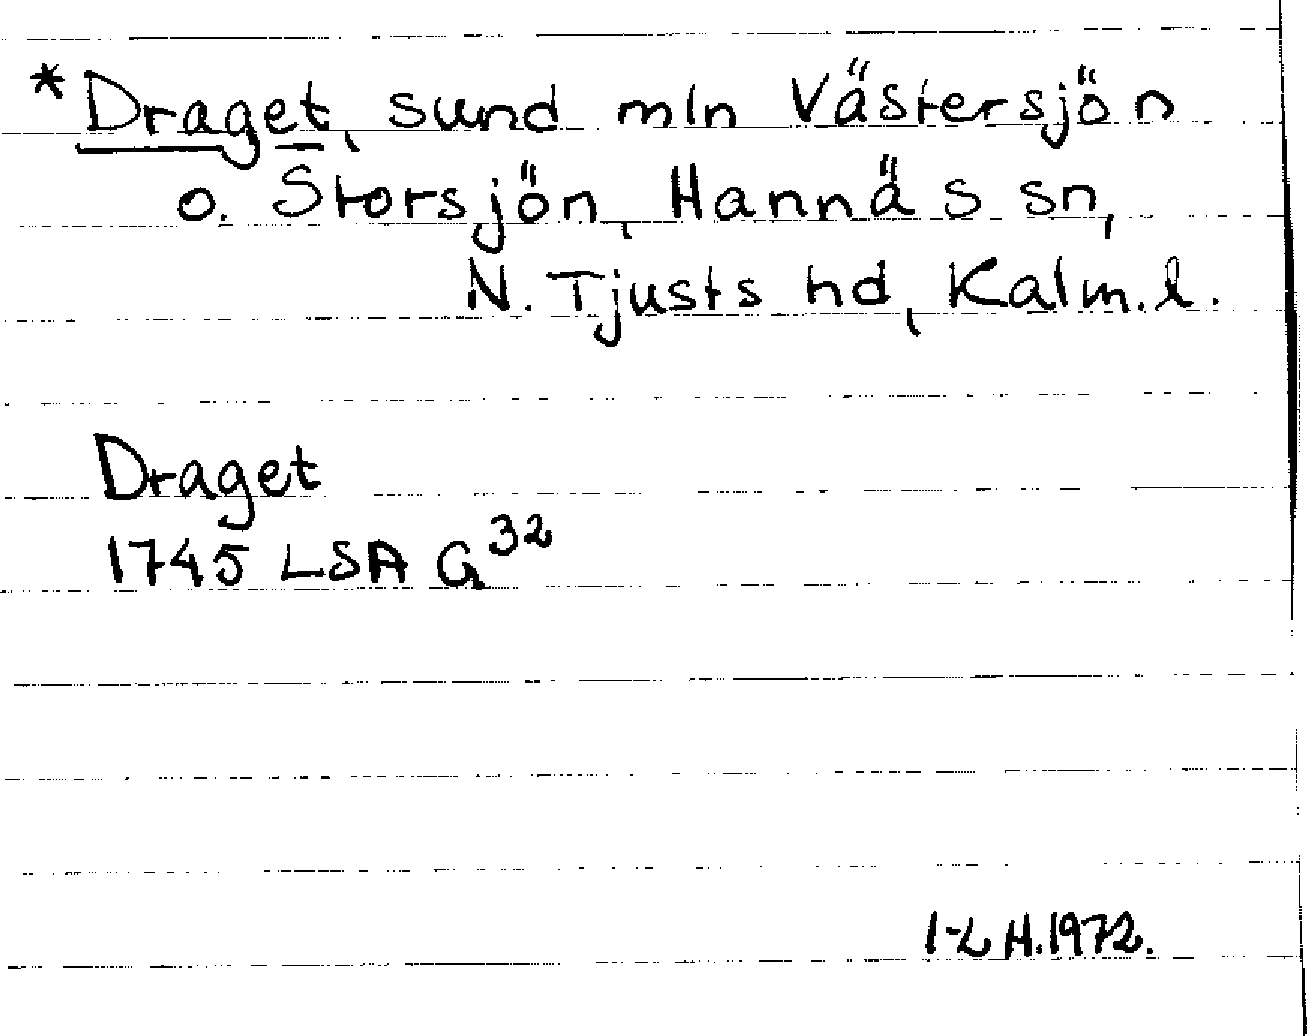 *Draget, sund mln Västersjön
o. Storsjön, Hannäs sn,
N. Tjusts hd, Kalm. l.
Draget
1745 LSA G 32
I-L H. 1972.